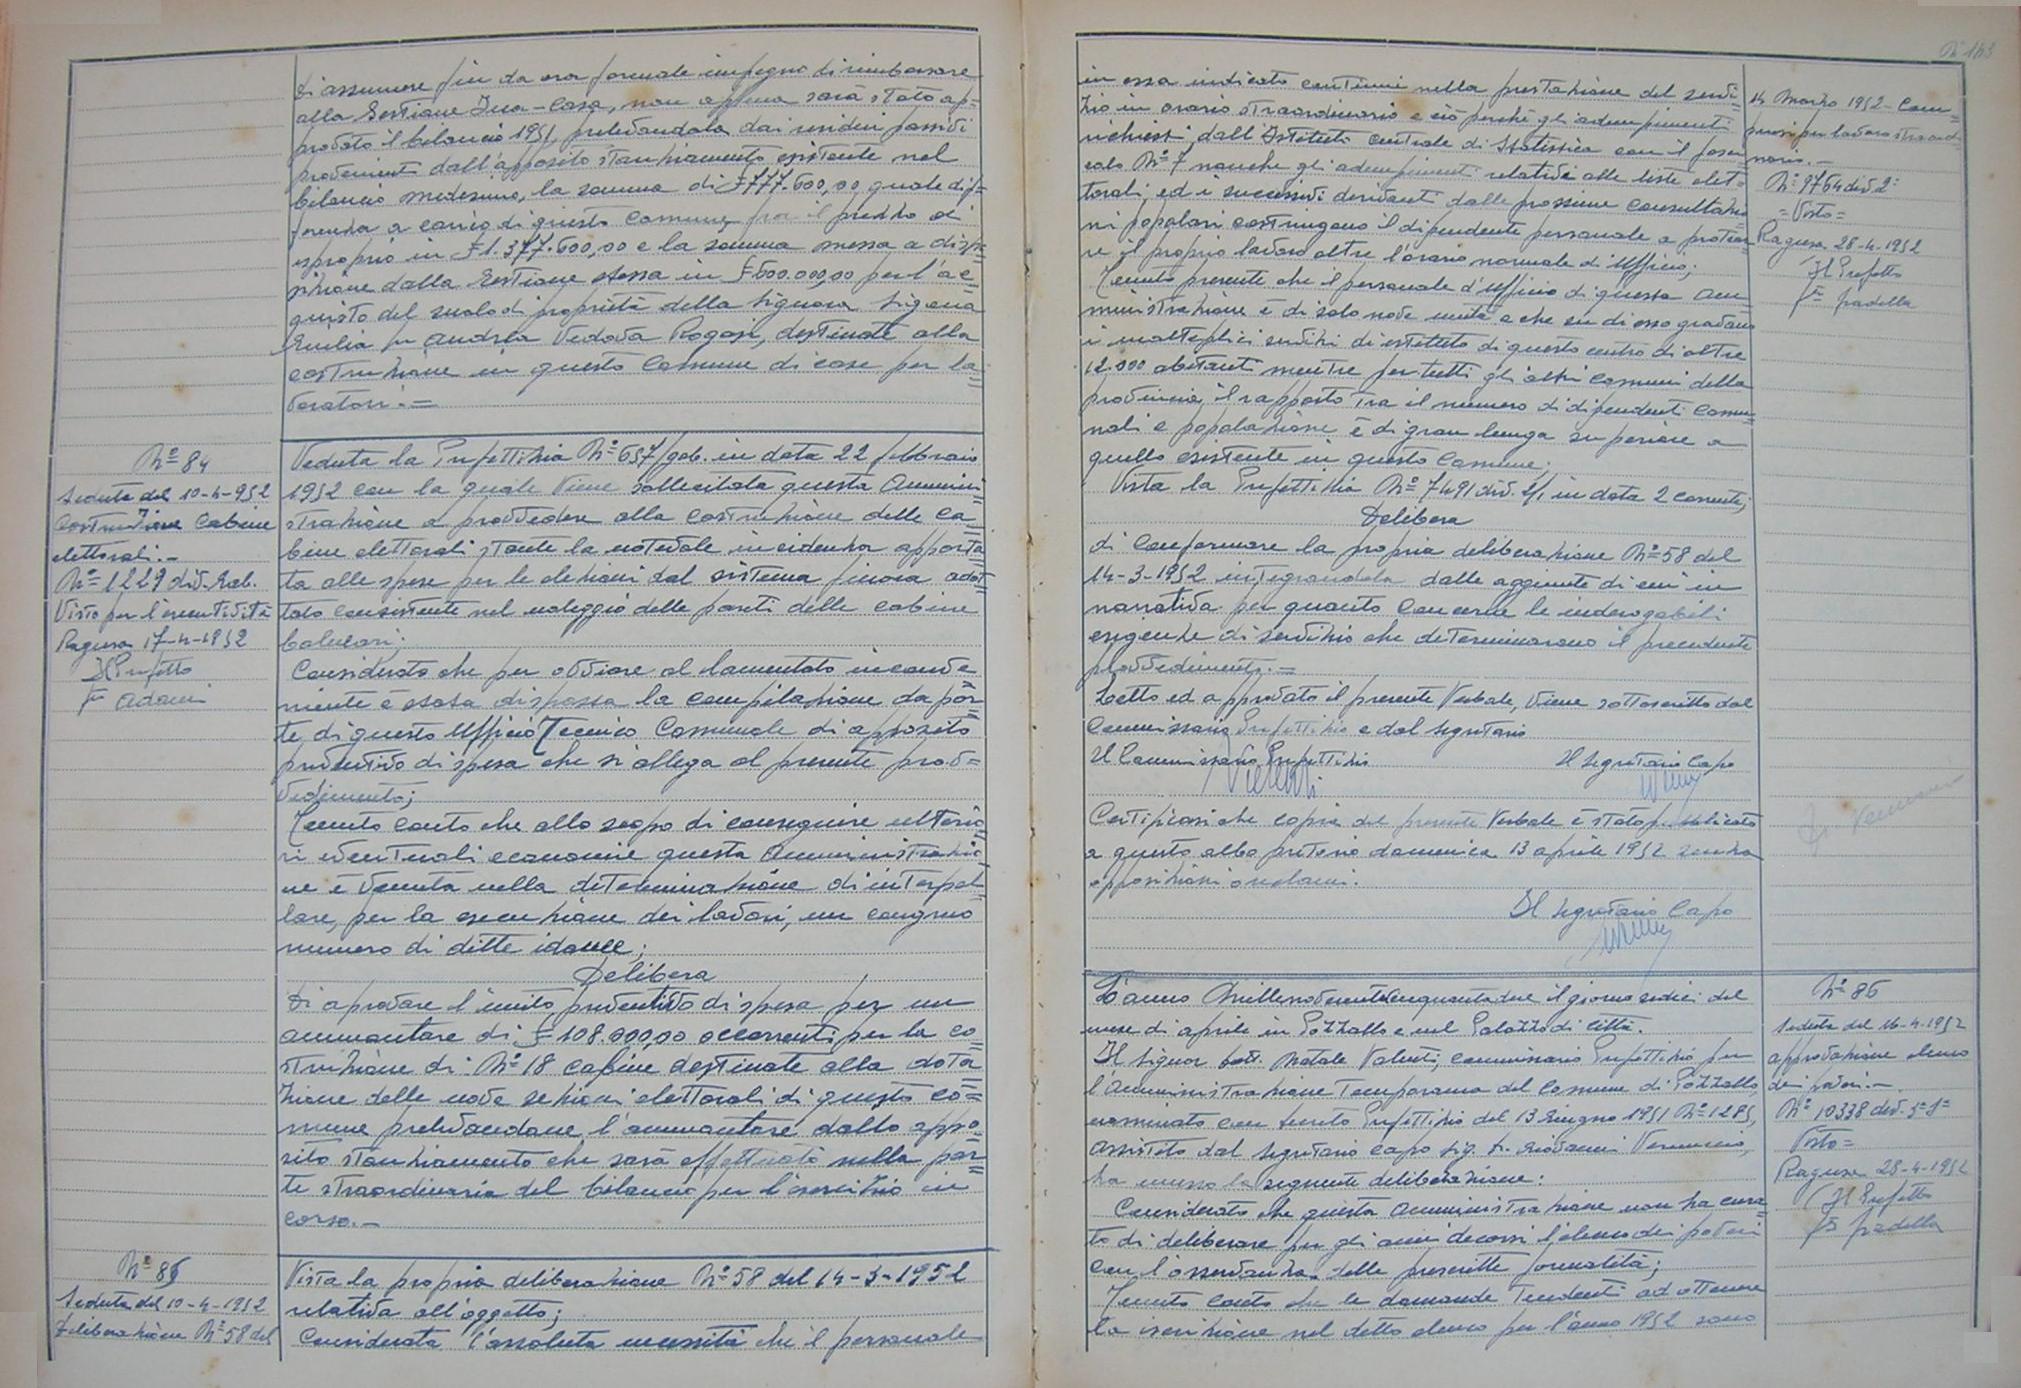 di assumere fin da ora formale impegno di rimborsare
alla Gestione Ina-Casa, non appena sarà stato ap=
provato il bilancio 1951, prelevandola dai residui passivi
provenienti dall'apposito stanziamento esistente nel
bilancio medesimo, la somma di £ 777.600,00 quale dif=
ferenza a carico di questo Comune, fra il prezzo di
esproprio in £ 1.377.600,00 e la somma messa a dispo=
sizione dalla Gestione stessa in £ 600.000,00 per l'ac=
quisto del suolo di proprietà della Signora Sigona
Emilia fu Andrea Vedova Rogasi, destinate alla
costruzione in questo Comune di case per la=
voratori.=
Nº 84
Seduta del 10-4-952
Costruzione Cabine
elettorali.-
Nº 1229 div. Gab.
Visto per l'esecutività
Ragusa 17-4-1952
Il Prefetto
Fto Adami
Veduta la Prefettizia Nº 657/gab. in data 22 febbraio
1952 con la quale viene sollecitata questa Ammini=
strazione a provvedere alla costruzione delle ca=
bine elettorali stante la notevole incidenza apporta=
ta alle spese per le elezioni dal sistema finora adot=
tato consistente nel noleggio delle pareti delle cabine
balneari;
Considerato che per ovviare al lamentato inconve=
niente è stata disposta la compilazione da par=
te di questo Ufficio Tecnico Comunale di apposito
preventivo di spesa che si allega al presente prov=
vedimento;
Tenuto conto che allo scopo di conseguire ulterio=
ri eventuali economie questa Amministrazio=
ne è venuta nella determinazione di interpel=
lare, per la esecuzione dei lavori, un congruo
numero di ditte idonee;
Delibera
Di aprovare l'unito preventivo di spesa per un
ammontare di £ 108.000,00 occorrenti per la co=
struzione di Nº 18 cabine destinate alla dota=
zione delle nove sezioni elettorali di questo Co=
mune prelevandone l'ammontare dallo appo=
sito stanziamento che sarà effettuato nella par=
te straordinaria del bilancio per l'esercizio in
corso.-
Nº 85
Seduta del 10-4-1952
Deliberazione Nº 58 del
Vista la propria deliberazione Nº 58 del 14-3-1952
relativa all'oggetto;
Considerata l'assoluta necessità che il personale
Nº 163
in essa indicato continui nella prestazione del servi=
zio in orario straordinario e ciò perchè gli adempimenti
richiesti dall'Istituto Centrale di Statistica con il fasci=
colo Nº 7 nonchè gli adempimenti relativi alle liste elet=
torali, ed i successivi derivanti dalle prossime consultazio=
ni popolari costringono il dipendente personale a protrar=
re il proprio lavoro oltre l'orario normale di Ufficio;
Tenuto presente che il personale d'Ufficio di questa Am=
ministrazione è di sole nove unità e che su di esso gravano
i molteplici servizi di istituto di questo centro di oltre
12.000 abitanti mentre per tutti gli altri Comuni della
provincia, il rapporto tra il numero di dipendenti Comu=
nali e popolazione è di gran lunga superiore a
quello esistente in questo Comune;
Vista la Prefettizia Nº 7491 div. 2/1 in data 2 corrente;
Delibera
di confermare la propria deliberazione Nº 58 del
14-3-1952 integrandola dalle aggiunte di cui in
narrativa per quanto concerne le inderogabili
esigenze di servizio che determinarono il precedente
provvedimento.=
Letto ed approvato il presente Verbale, viene sottoscritto dal
Commissario Prefettizio e dal Segretario
Il Commissario Prefettizio Il Segretario Capo
Certificasi che copia del presente Verbale è stato pubblicato
a questo albo pretorio domenica 13 aprile 1952 senza
opposizioni o reclami.
Il Segretario Capo
14 Marzo 1952 - Com=
pensi per lavoro straordi=
nario.-
Nº 9764 div. 2ª
=Visto=
Ragusa 28-4-1952
Il Prefetto
Fto Padella
L'anno Millenovecentocinquantadue il giorno sedici del
mese di aprile in Pozzallo e nel Palazzo di Città.
Il Signor Dott. Natale Valenti, Commissario Prefettizio per
l'Amministrazione Temporanea del Comune di Pozzallo,
nominato con decreto Prefettizio del 13 Giugno 1951 Nº 1285,
assistito dal Segretario Capo Sig. Dr. Giovanni Vennuccio,
ha emesso la seguente deliberazione:
Considerato che questa Amministrazione non ha cura=
to di deliberare per gli anni decorsi l'elenco dei poveri
con l'osservanza delle prescritte formalità;
Tenuto conto che le domande tendenti ad ottenere
la iscrizione nel detto elenco per l'anno 1952 sono
Nº 86
Seduta del 16-4-1952
approvazione elenco
dei poveri.-
Nº 10338 div.
Visto=
Ragusa 28-4-1952
Il Prefetto
Fto Padella